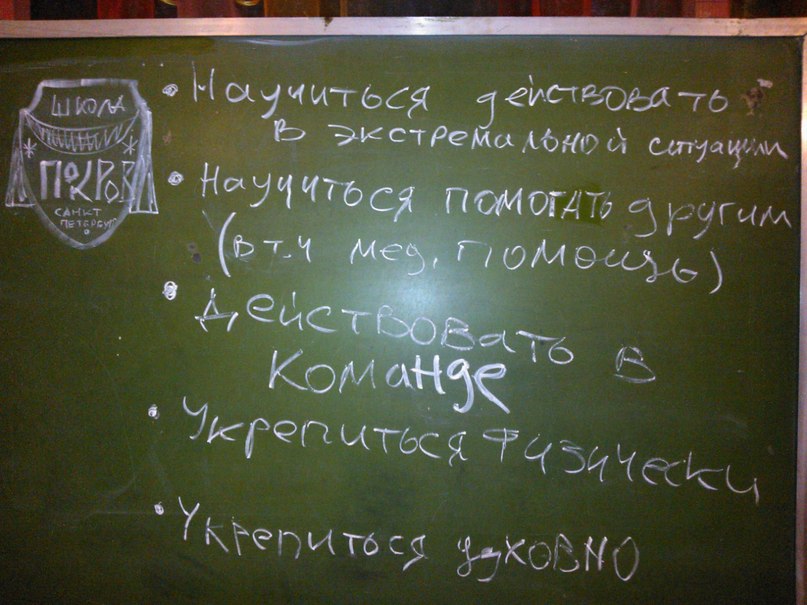 ШКОЛА
ПОКРОВ
САНКТ
ПЕТЕРБУРГ
• Научиться действовать
в экстремальной ситуации
• Научиться помогать другим
(в т.ч мед. помощь)
• Действовать в
команде
• Укрепиться физически
• Укрепиться духовно